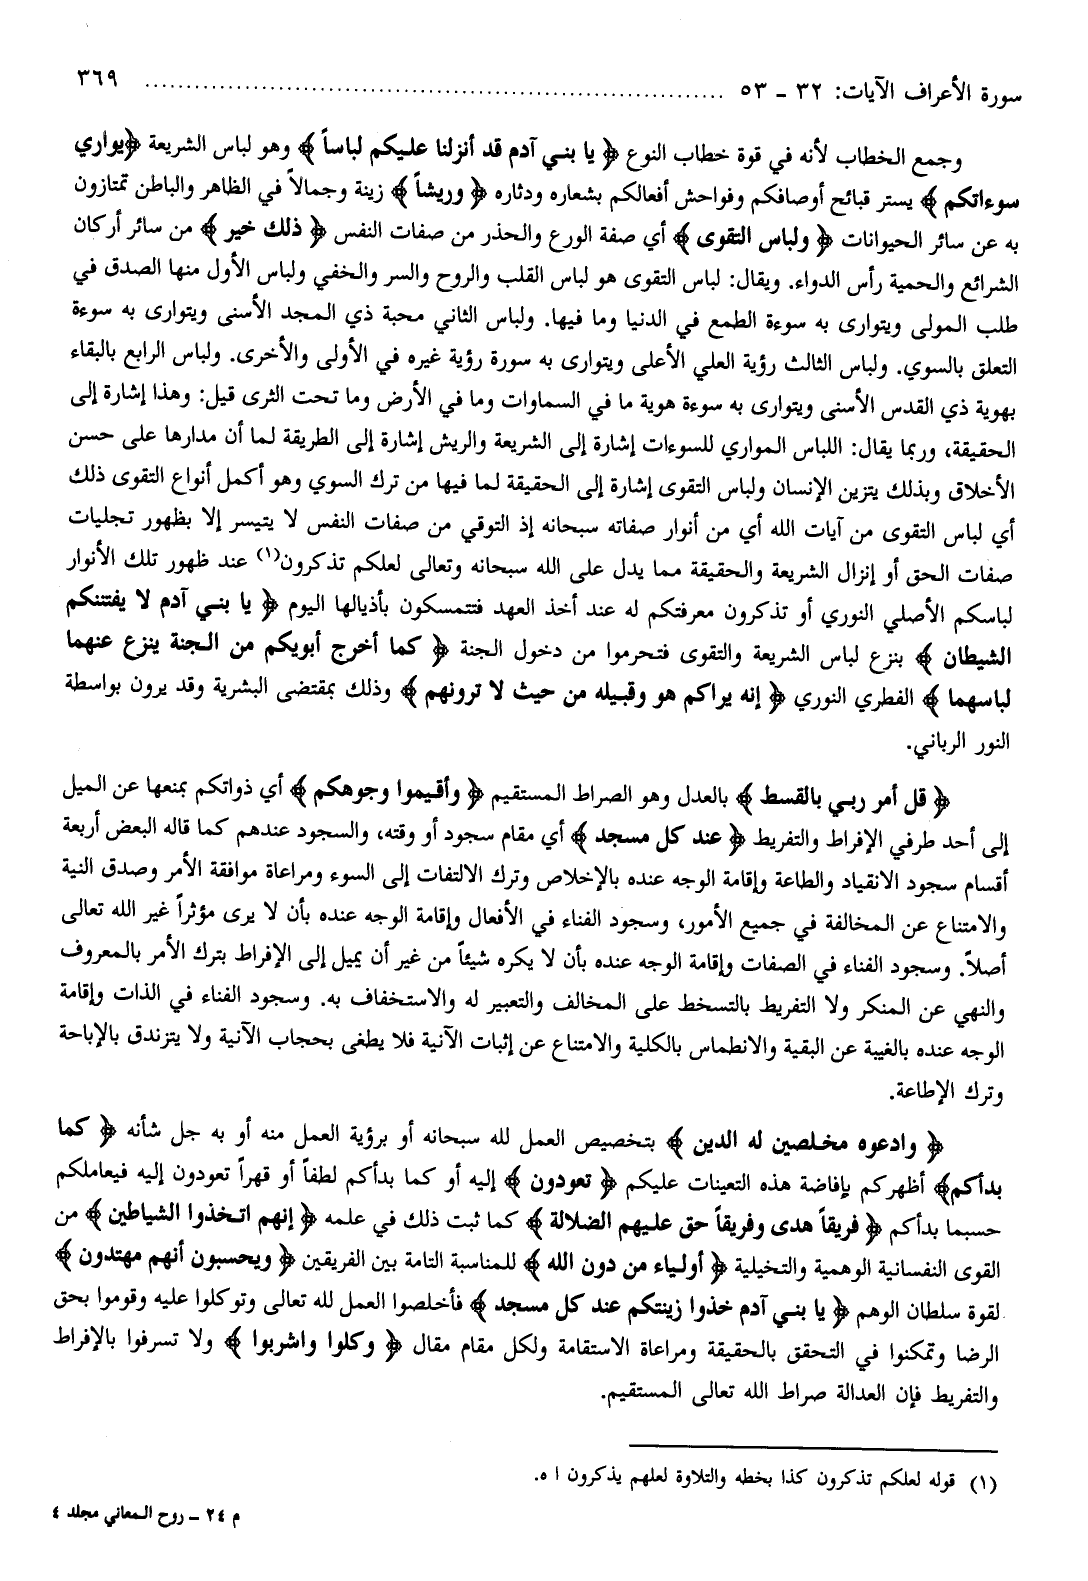 سورة الأعراف الآيات: ٣٢ ـ ٥٣ ........................................................................ ٣٦٩
وجمع الخطاب لأنه في قوة خطاب النوع ﴿ يا بني آدم قد أنزلنا عليكم لباساً ﴾ وهو لباس الشريعة ﴿يواري
سوءاتكم ﴾ يستر قبائح أوصافكم وفواحش أفعالكم بشعاره ودثاره ﴿ وريشاً ﴾ زينة وجمالاً في الظاهر والباطن تمتازون
به عن سائر الحيوانات ﴿ ولباس التقوى ﴾ أي صفة الورع والحذر من صفات النفس ﴿ ذلك خير ﴾ من سائر أركان
الشرائع والحمية رأس الدواء. ويقال: لباس التقوى هو لباس القلب والروح والسر والخفي ولباس الأول منها الصدق في
طلب المولى ويتوارى به سوءة الطمع في الدنيا وما فيها. ولباس الثاني محبة ذي المجد الأسنى ويتوارى به سوءة
التعلق بالسوي. ولباس الثالث رؤية العلي الأعلى ويتوارى به سورة رؤية غيره في الأولى والأخرى. ولباس الرابع بالبقاء
بهوية ذي القدس الأسنى ويتوارى به سوءة هوية ما في السماوات وما في الأرض وما تحت الثرى قيل: وهذا إشارة إلى
الحقيقة، وربما يقال: اللباس المواري للسوءات إشارة إلى الشريعة والريش إشارة إلى الطريقة لما أن مدارها على حسن
الأخلاق وبذلك يتزين الإنسان ولباس التقوى إشارة إلى الحقيقة لما فيها من ترك السوي وهو أكمل أنواع التقوى ذلك
أي لباس التقوى من آيات الله أي من أنوار صفاته سبحانه إذ التوقي من صفات النفس لا يتيسر إلا بظهور تجليات
صفات الحق أو إنزال الشريعة والحقيقة مما يدل على الله سبحانه وتعالى لعلكم تذكرون(١) عند ظهور تلك الأنوار
لباسكم الأصلي النوري أو تذكرون معرفتكم له عند أخذ العهد فتتمسكون بأذيالها اليوم ﴿ يا بني آدم لا يفتننكم
الشيطان ﴾ بنزع لباس الشريعة والتقوى فتحرموا من دخول الجنة ﴿ كما أخرج أبويكم من الجنة ينزع عنهما
لباسهما ﴾ الفطري النوري ﴿ إنه يراكم هو وقبيله من حيث لا ترونهم ﴾ وذلك بمقتضى البشرية وقد يرون بواسطة
النور الرباني.
﴿ قل أمر ربي بالقسط ﴾ بالعدل وهو الصراط المستقيم ﴿ وأقيموا وجوهكم ﴾ أي ذواتكم بمنعها عن الميل
إلى أحد طرفي الإفراط والتفريط ﴿ عند كل مسجد ﴾ أي مقام سجود أو وقته، والسجود عندهم كما قاله البعض أربعة
أقسام سجود الانقياد والطاعة وإقامة الوجه عنده بالإخلاص وترك الالتفات إلى السوء ومراعاة موافقة الأمر وصدق النية
والامتناع عن المخالفة في جميع الأمور، وسجود الفناء في الأفعال وإقامة الوجه عنده بأن لا يرى مؤثراً غير الله تعالى
أصلاً. وسجود الفناء في الصفات وإقامة الوجه عنده بأن لا يكره شيئاً من غير أن يميل إلى الإفراط بترك الأمر بالمعروف
والنهي عن المنكر ولا التفريط بالتسخط على المخالف والتعبير له والاستخفاف به. وسجود الفناء في الذات وإقامة
الوجه عنده بالغيبة عن البقية والانطماس بالكلية والامتناع عن إثبات الآنية فلا يطغى بحجاب الآنية ولا يتزندق بالإباحة
وترك الإطاعة.
﴿ وادعوه مخلصين له الدين ﴾ بتخصيص العمل لله سبحانه أو برؤية العمل منه أو به جل شأنه ﴿ كما
بدأكم﴾ أظهركم بإفاضة هذه التعينات عليكم ﴿ تعودون ﴾ إليه أو كما بدأكم لطفاً أو قهراً تعودون إليه فيعاملكم
حسبما بدأكم ﴿ فريقاً هدى وفريقاً حق عليهم الضلالة ﴾ كما ثبت ذلك في علمه ﴿ إنهم اتخذوا الشياطين ﴾ من
القوى النفسانية الوهمية والتخيلية ﴿ أولياء من دون الله ﴾ للمناسبة التامة بين الفريقين ﴿ ويحسبون أنهم مهتدون ﴾
لقوة سلطان الوهم ﴿ يا بني آدم خذوا زينتكم عند كل مسجد ﴾ فأخلصوا العمل لله تعالى وتوكلوا عليه وقوموا بحق
الرضا وتمكنوا في التحقق بالحقيقة ومراعاة الاستقامة ولكل مقام مقال ﴿ وكلوا واشربوا ﴾ ولا تسرفوا بالإفراط
والتفريط فإن العدالة صراط الله تعالى المستقيم.
(١) قوله لعلكم تذكرون كذا بخطه والتلاوة لعلهم يذكرون ا ه.
م ٢٤ ـ روح المعاني مجلد ٤